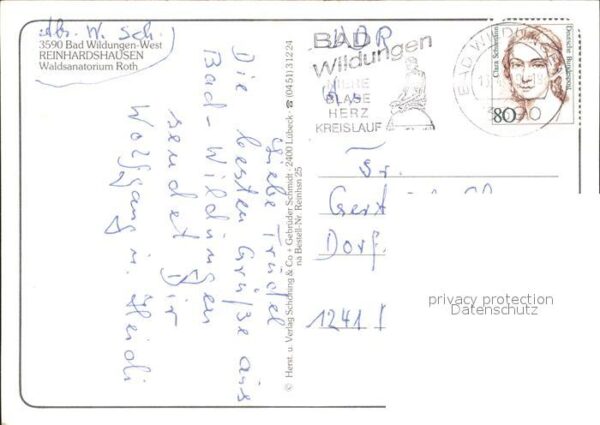 Abs. W. Sch.
3590 Bad Wildungen-West
REINHARDSHAUSEN
Waldsanatorium Roth
Liebe Trudel
Die besten Grüße aus
Bad-Wildungen
sendet Dir
Wolfgang u. Heidi
© Herst. u. Verlag Schöning & Co + Gebrüder Schmidt · 2400 Lübeck · ☎ (0451) 31224
na Bestell-Nr. Reinhsn 25
BAD
Wildungen
NIERE
BLASE
HERZ
KREISLAUF
BAD WILDUN
3590
Clara Schumann
Deutsche Bundespost
80
Gert
Dorf
1241
privacy protection
Datenschutz